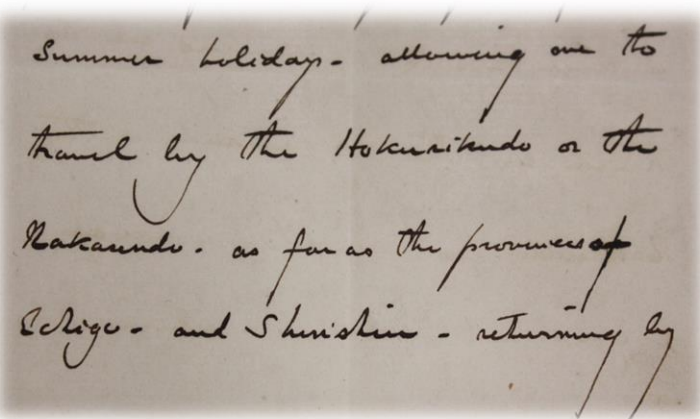 Summer holidays - allowing one to
travel by the Hokurikudo or the
Nakasendo - as far as the provinces of
Echigo - and Shinshiu - returning by